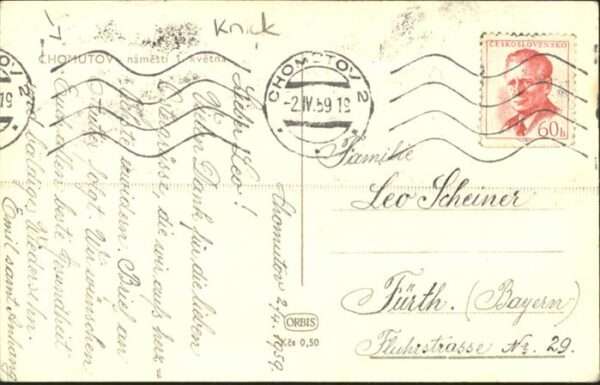 Knick
CHOMUTOV, náměstí 1. května
CHOMUTOV 2
-2.IV.59 19
ČESKOSLOVENSKO
60h
Chomutov 2.4.1959
Lieber Leo!
Vielen Dank für die lieben
Ostergrüsse, die wir aufs herz-
lichste erwidern. Brief an
Autes folgt. Wir wünschen
Euch allen beste Gesundheit
baldiges Wiedersehn.
Emil samt Anhang
ORBIS
Kčs 0,50
Familie
Leo Scheiner
Fürth. (Bayern)
Fluhrstrasse Nr. 29.